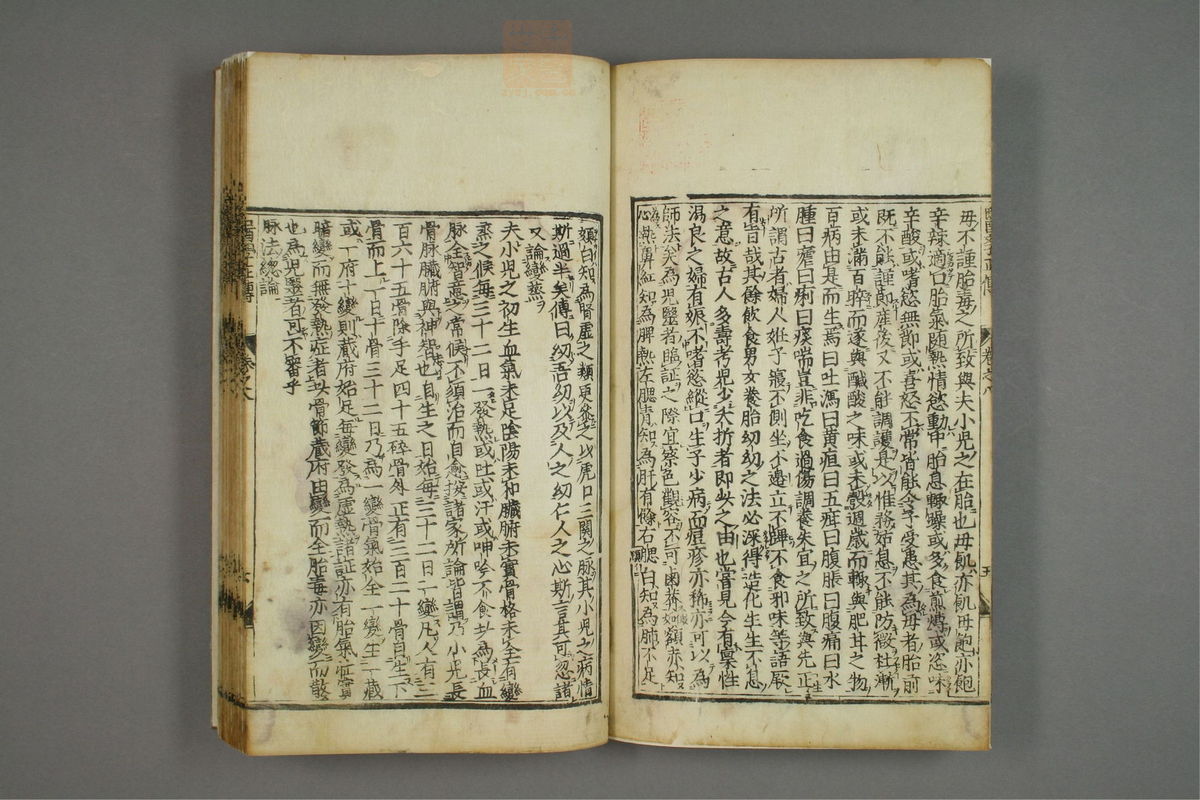 毋不謹胎毒之所致與夫小兒之在胎也母飢亦飢母飽亦飽
辛辣適口胎氣随熱情慾動中胎息輙躁或多食煎煿或恣味
辛酸或嗜慾無節或喜怒不常皆能令子受患其為母者胎前
既不能謹節産後又不能調護是以惟務姑息不能防微杜漸
或未滿百晬而遂與醎酸之味或未榖週歲而輙與肥甘之物
百病由是而生焉曰吐瀉曰黄疸曰五疳曰腹脹曰腹痛曰水
腫曰瘧曰痢曰痰喘豈非吃食過傷調養失宜之所致與先正
所謂古者婦人姙子寢不側坐不邉立不蹕不食邪味等語厥
有旨哉其餘飲食男女養胎幼幼之法必深得造化生生不息
之意故古人多壽考兒少夭折者即此之由也嘗見今有禀性
温良之婦有娠不嗜慾縱口生子少病而痘疹亦稀亦可以為
師法矣為兒醫者臨証之際宜察色觀容不可鹵莾如額赤知
心熱鼻紅知為脾熱左腮青知為肝有餘右腮白知為肺不足
頦白知為腎虚之類更参之以虎口三關之脉其小兒之病情
斯過半矣傳曰幼吾幼以及人之幼仁人之心斯言其可忽諸
又論變蒸
夫小兒之初生血氣未足陰陽未和臓腑未實骨格未全有變
蒸之候每三十二日一發熱或吐或汗或呻吟不食此為長血
脉全智意之常候不須治而自愈按諸家所論皆謂乃小兒長
骨脉臓腑與神智也自生之日始每三十二日一變凡人有三
百六十五骨除手足四十五碎骨外正有三百二十骨自生下
骨而上一日十骨三十二日乃為一變骨氣始全一變生一藏
或一府十變則藏府始足每變發為虚熱諸証亦有胎氣㽵實
暗變而無發熱症者盖骨節藏府由變而全胎毒亦因變而散
也為兒醫者可不審乎
脉法總論
醫學正傳
卷之八